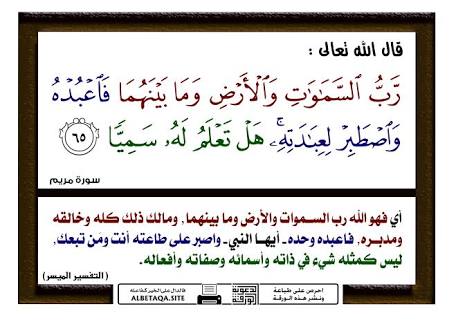 قال الله تعالى :
رَّبُّ ٱلسَّمَٰوَٰتِ وَٱلْأَرْضِ وَمَا بَيْنَهُمَا فَٱعْبُدْهُ
وَٱصْطَبِرْ لِعِبَٰدَتِهِۦۚ هَلْ تَعْلَمُ لَهُۥ سَمِيًّا ٦٥
سورة مريم
أي فهو الله رب السموات والأرض وما بينهما، ومالك ذلك كله وخالقه
ومدبره، فاعبده وحده ـ أيها النبي ـ واصبر على طاعته أنت ومَن تبعك،
ليس كمثله شيء في ذاته وأسمائه وصفاته وأفعاله.
(التفسير الميسر)
احرص على طباعة
ونشر هذه الورقة
دعوية
الورقة
فالدال على الخير كفاعله
ALBETAQA.SITE